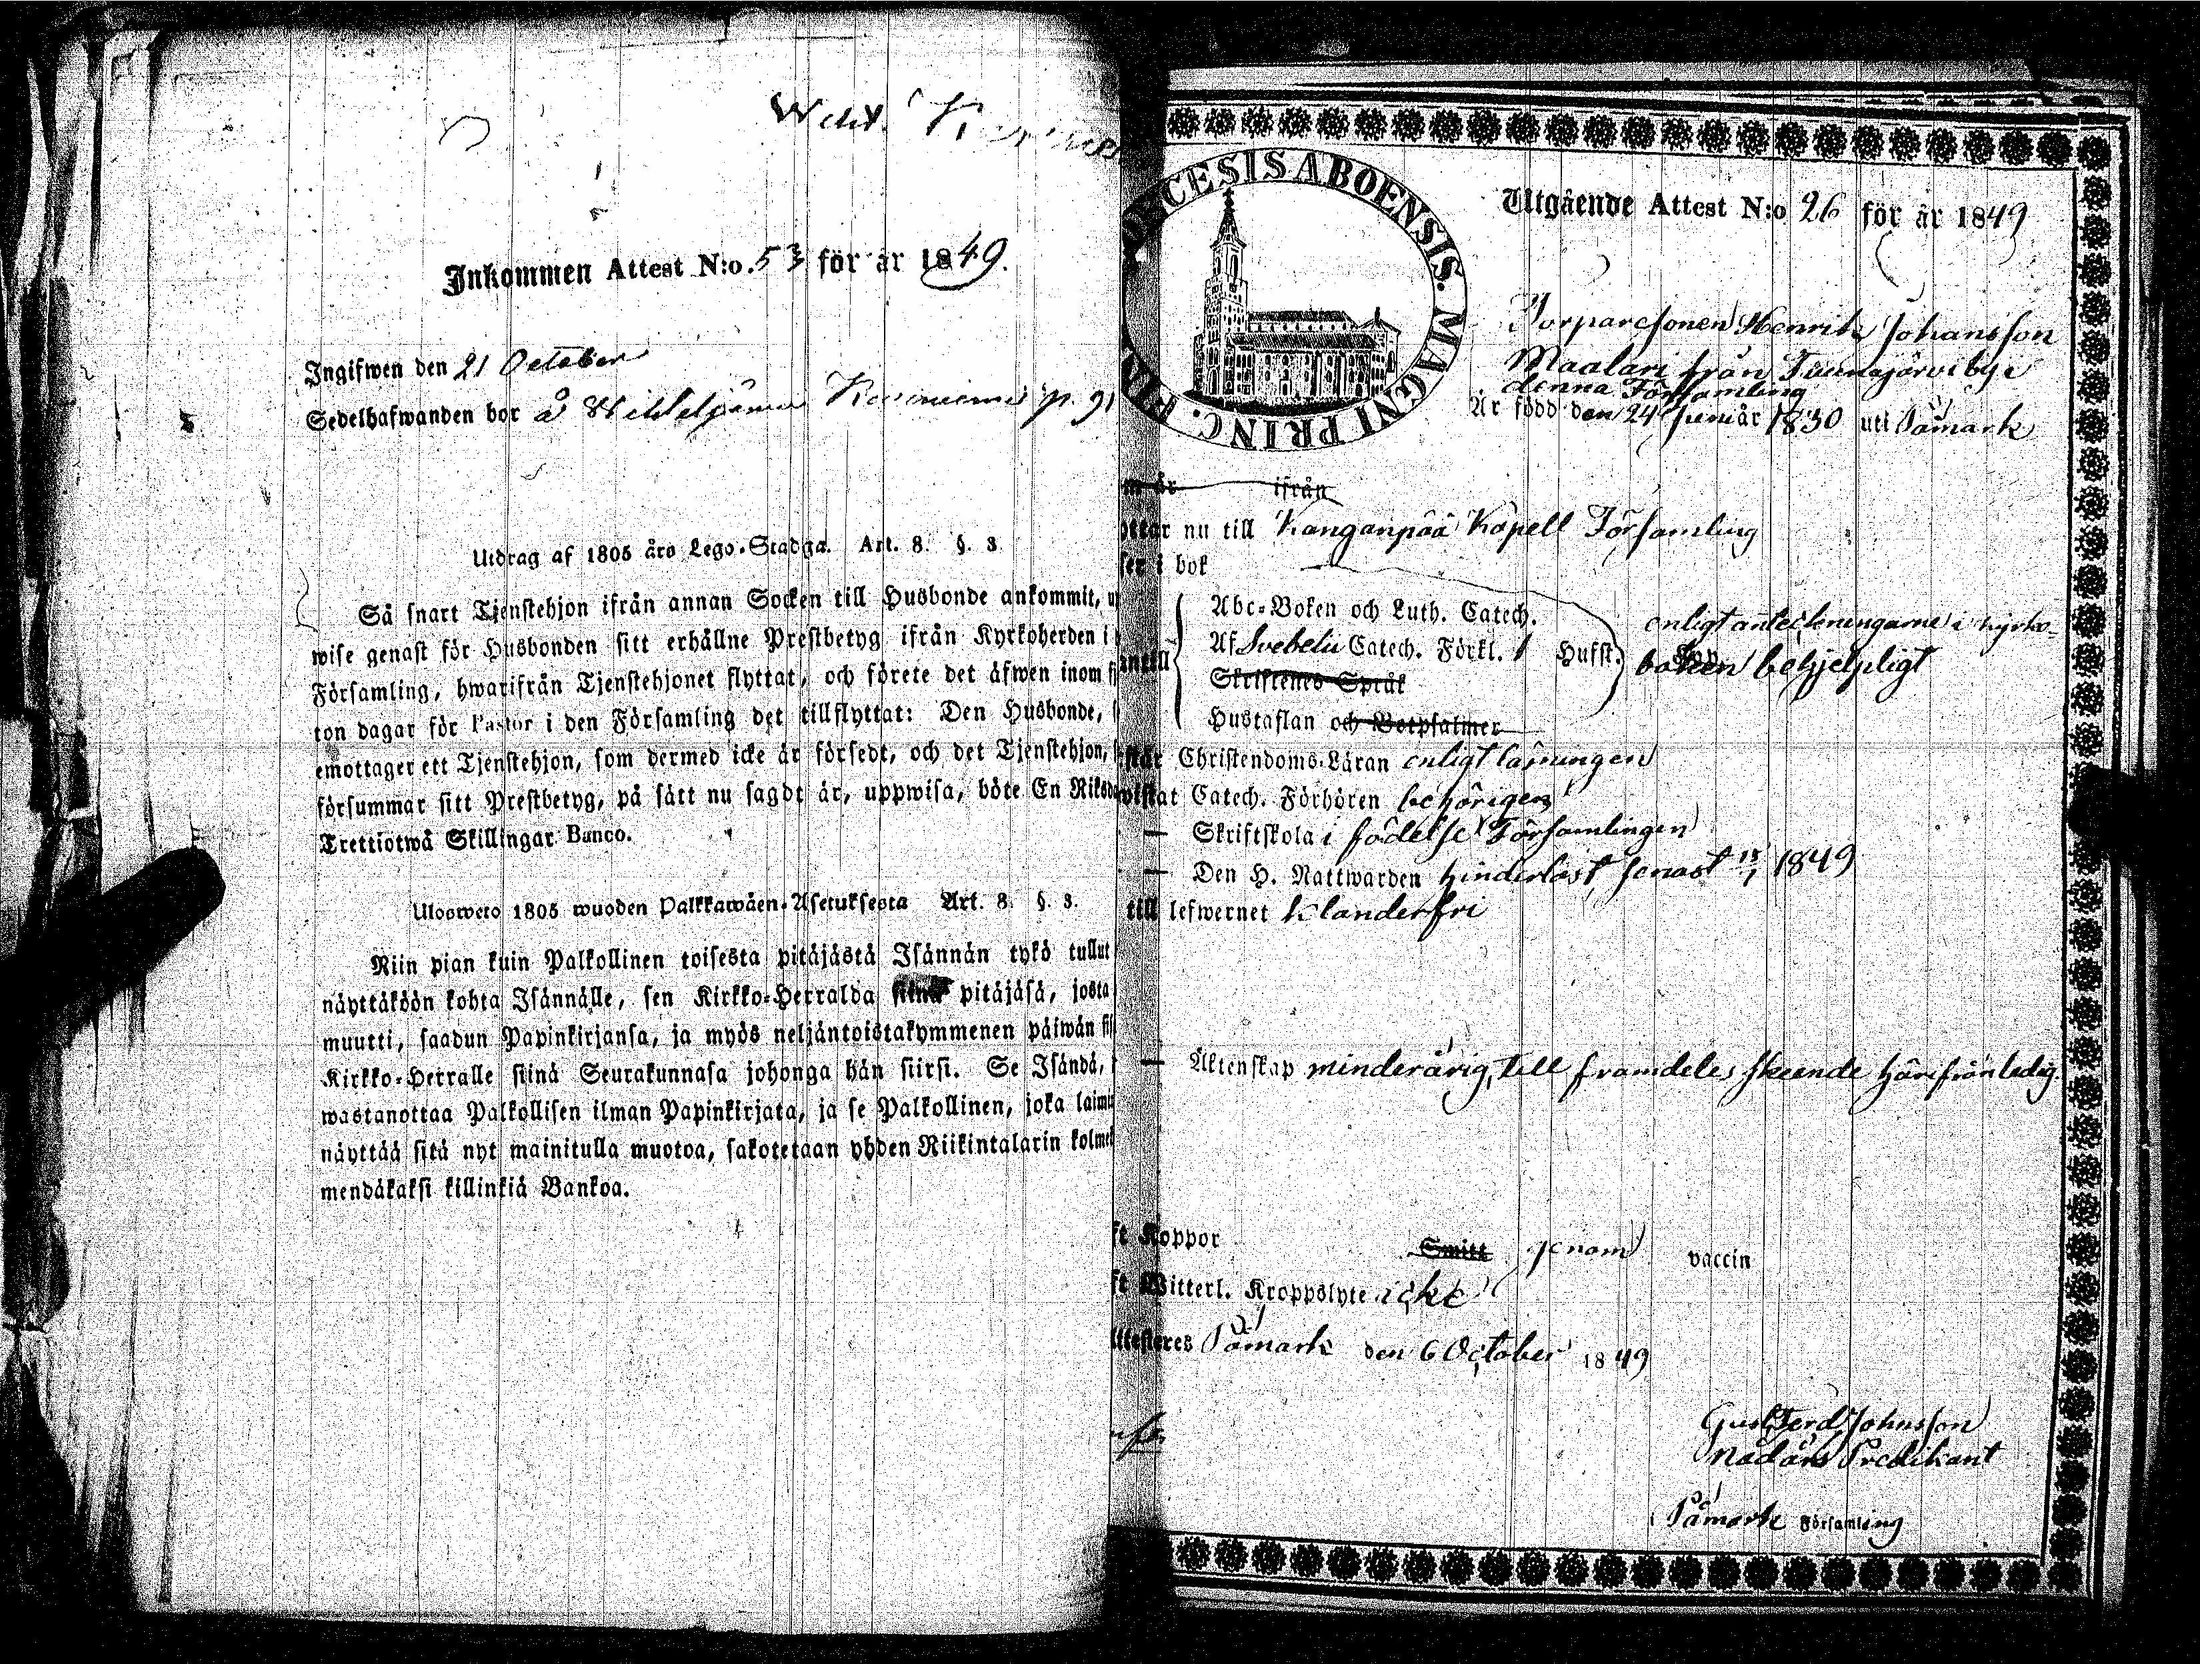 Inkommen Attest N:o. 53 för år 1849.
Ingifwen den 21 October
Sedelhafwanden bor å p. 91
Utdrag af 1805 års Lego-Stadga. Art. 8. §. 3
Så snart Tjenstehjon ifrån annan Socken till Husbonde ankommit, u
wise genast för Husbonden sitt erhållne Prestbetyg ifrån Kyrkoherden i
Församling, hwarifrån Tjenstehjonet flyttat, och förete det äfwen inom fj
ton dagar för Pastor i den Församling det tillflyttat: Den Husbonde, s
emottager ett Tjenstehjon, som dermed icke är försedt, och det Tjenstehjon, s
försummar sitt Prestbetyg, på sätt nu sagdt är, uppwisa, böte En Riksda
Trettiotwå Skillingar Banco.
Ulosweto 1805 wuoden Palkkawäen-Asetuksesta Art. 8. §. 3.
Niin pian kuin Palkollinen toisesta pitäjästä Isännän tykö tullut
näyttäköön kohta Isännälle, sen Kirkko-Herralda siinä pitäjäsä, josta
muutti, saadun Papinkirjansa, ja myös neljäntoistakymmenen päiwän si
Kirkko-Herralle siinä Seurakunnasa johonga hän siirsi. Se Isändä, j
wastanottaa Palkollisen ilman Papinkirjata, ja se Palkollinen, joka laimi
näyttää sitä nyt mainitulla muotoa, sakotetaan yhden Riikintalarin kolmek
mendäkaksi killinkiä Bankoa.
DIOECESIS ABOENSIS. MAGNI PRINC. FIN
Utgående Attest N:o 26 för år 1849
Torparesonen Henrik Johansson
Maalari från Tuunajärvi by i
denna Församling
Är född den 24 Januar 1830 uti Påmark
m år ifrån
ottar nu till Kanganpää Kapell Församling
ser i bok
Abc-Boken och Luth. Catech.
enligt anteckningarne i kyrko-
antill Af Svebelii Catech. Förkl. Husst. boken behjelpligt
Skriftenes Språk
Hustaflan och Botpsalmer
står Christendoms-Läran enligt läsningen
wistat Catech. Förhören behörigen
— Skriftskola i födelse Församlingen
— Den H. Nattwarden hinderlöst, senast 1849
till lefwernet klanderfri
— Äktenskap minderårig, till framdeles skeende härifrån ledig.
ft Koppor Smitt genom vaccin
ft Witterl. Kroppslyte icke
ttesteres Påmark den 6 October 1849
Gust. Ferd. Johnsson
Nådårs Predikant
i Påmark Församling